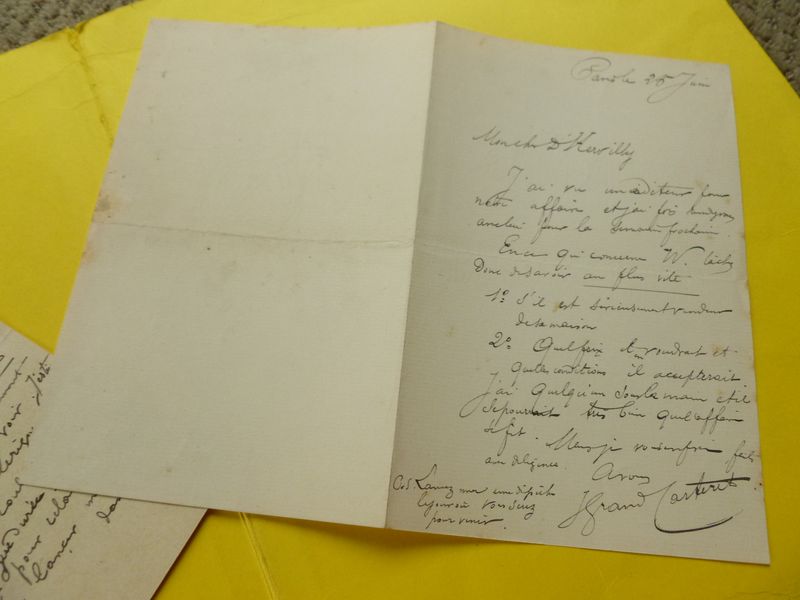 Paris le 25 Juin
Mon cher D'Hervilly
J'ai vu un éditeur pour
notre affaire et j'ai pris rendez vous
avec lui pour la semaine prochaine.
En ce qui concerne W. tâchez
donc de savoir au plus vite
1º S'il est sérieusement vendeur
de sa maison
2º Quel prix il en voudrait et
quelles conditions il accepterait.
J'ai quelqu'un sous la main et il
se pourrait très bien que l'affaire
se fit. Mais je vous en prie faites
diligence.
A vous
J Grand Carteret
Lancez moi une dépêche
le jour où vous
pour venir.
voir
pour cela